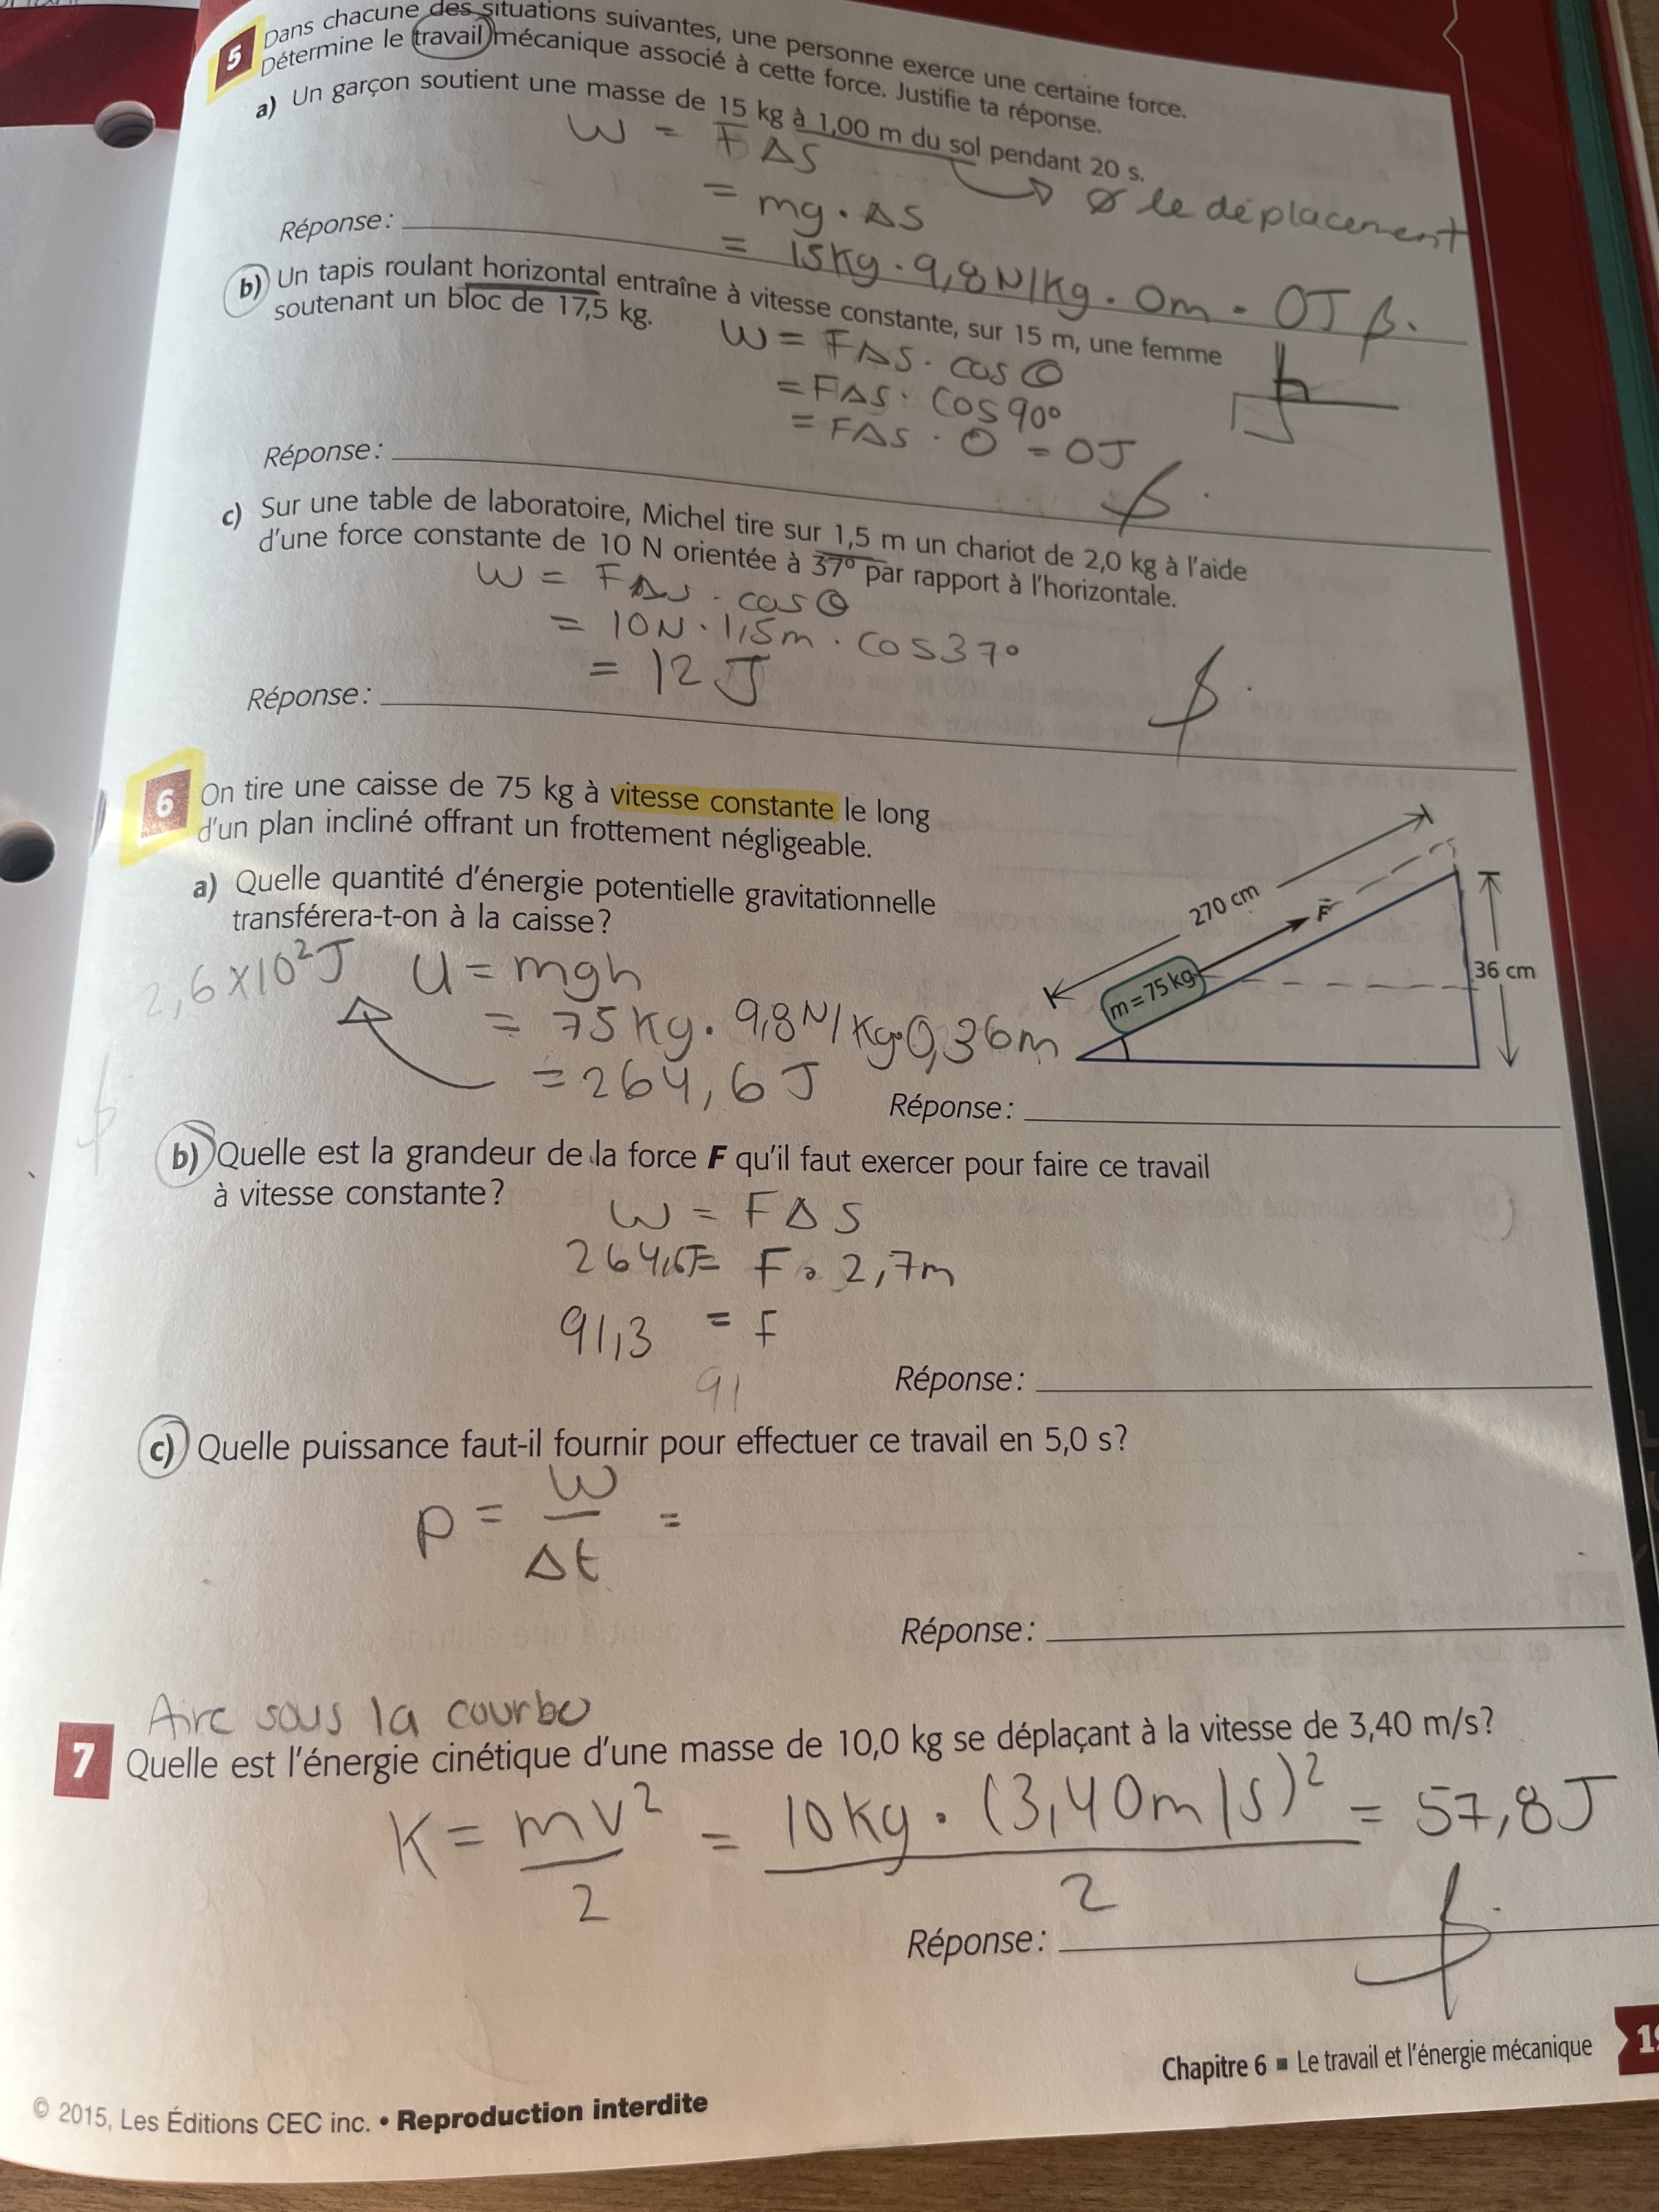 5 Dans chacune des situations suivantes, une personne exerce une certaine force.
Détermine le travail mécanique associé à cette force. Justifie ta réponse.
a) Un garçon soutient une masse de 15 kg à 1,00 m du sol pendant 20 s.
W = F Δs
→ Ø le déplacement
= mg · Δs
Réponse :
= 15kg · 9,8N/kg · 0m = 0J
b) Un tapis roulant horizontal entraîne à vitesse constante, sur 15 m, une femme
soutenant un bloc de 17,5 kg.
W = FΔs · cos θ
= FΔs · cos 90°
= FΔs · 0 = 0J
Réponse :
c) Sur une table de laboratoire, Michel tire sur 1,5 m un chariot de 2,0 kg à l'aide
d'une force constante de 10 N orientée à 37° par rapport à l'horizontale.
W = FΔs · cos θ
= 10N · 1,5m · cos37°
= 12 J
Réponse :
6 On tire une caisse de 75 kg à vitesse constante le long
d'un plan incliné offrant un frottement négligeable.
a) Quelle quantité d'énergie potentielle gravitationnelle
transférera-t-on à la caisse?
270 cm
F
36 cm
m = 75 kg
2,6x10²J
U = mgh
= 75kg · 9,8N/kg·0,36m
= 264,6 J
Réponse :
b) Quelle est la grandeur de la force F qu'il faut exercer pour faire ce travail
à vitesse constante?
W = FΔs
264,6J= F · 2,7m
91,3 = F
91
Réponse :
c) Quelle puissance faut-il fournir pour effectuer ce travail en 5,0 s?
P = W/Δt =
Réponse :
Aire sous la courbe
7 Quelle est l'énergie cinétique d'une masse de 10,0 kg se déplaçant à la vitesse de 3,40 m/s?
K = mv²/2 = 10kg · (3,40m/s)²/2 = 57,8J
Réponse :
Chapitre 6 ■ Le travail et l'énergie mécanique
© 2015, Les Éditions CEC inc. • Reproduction interdite